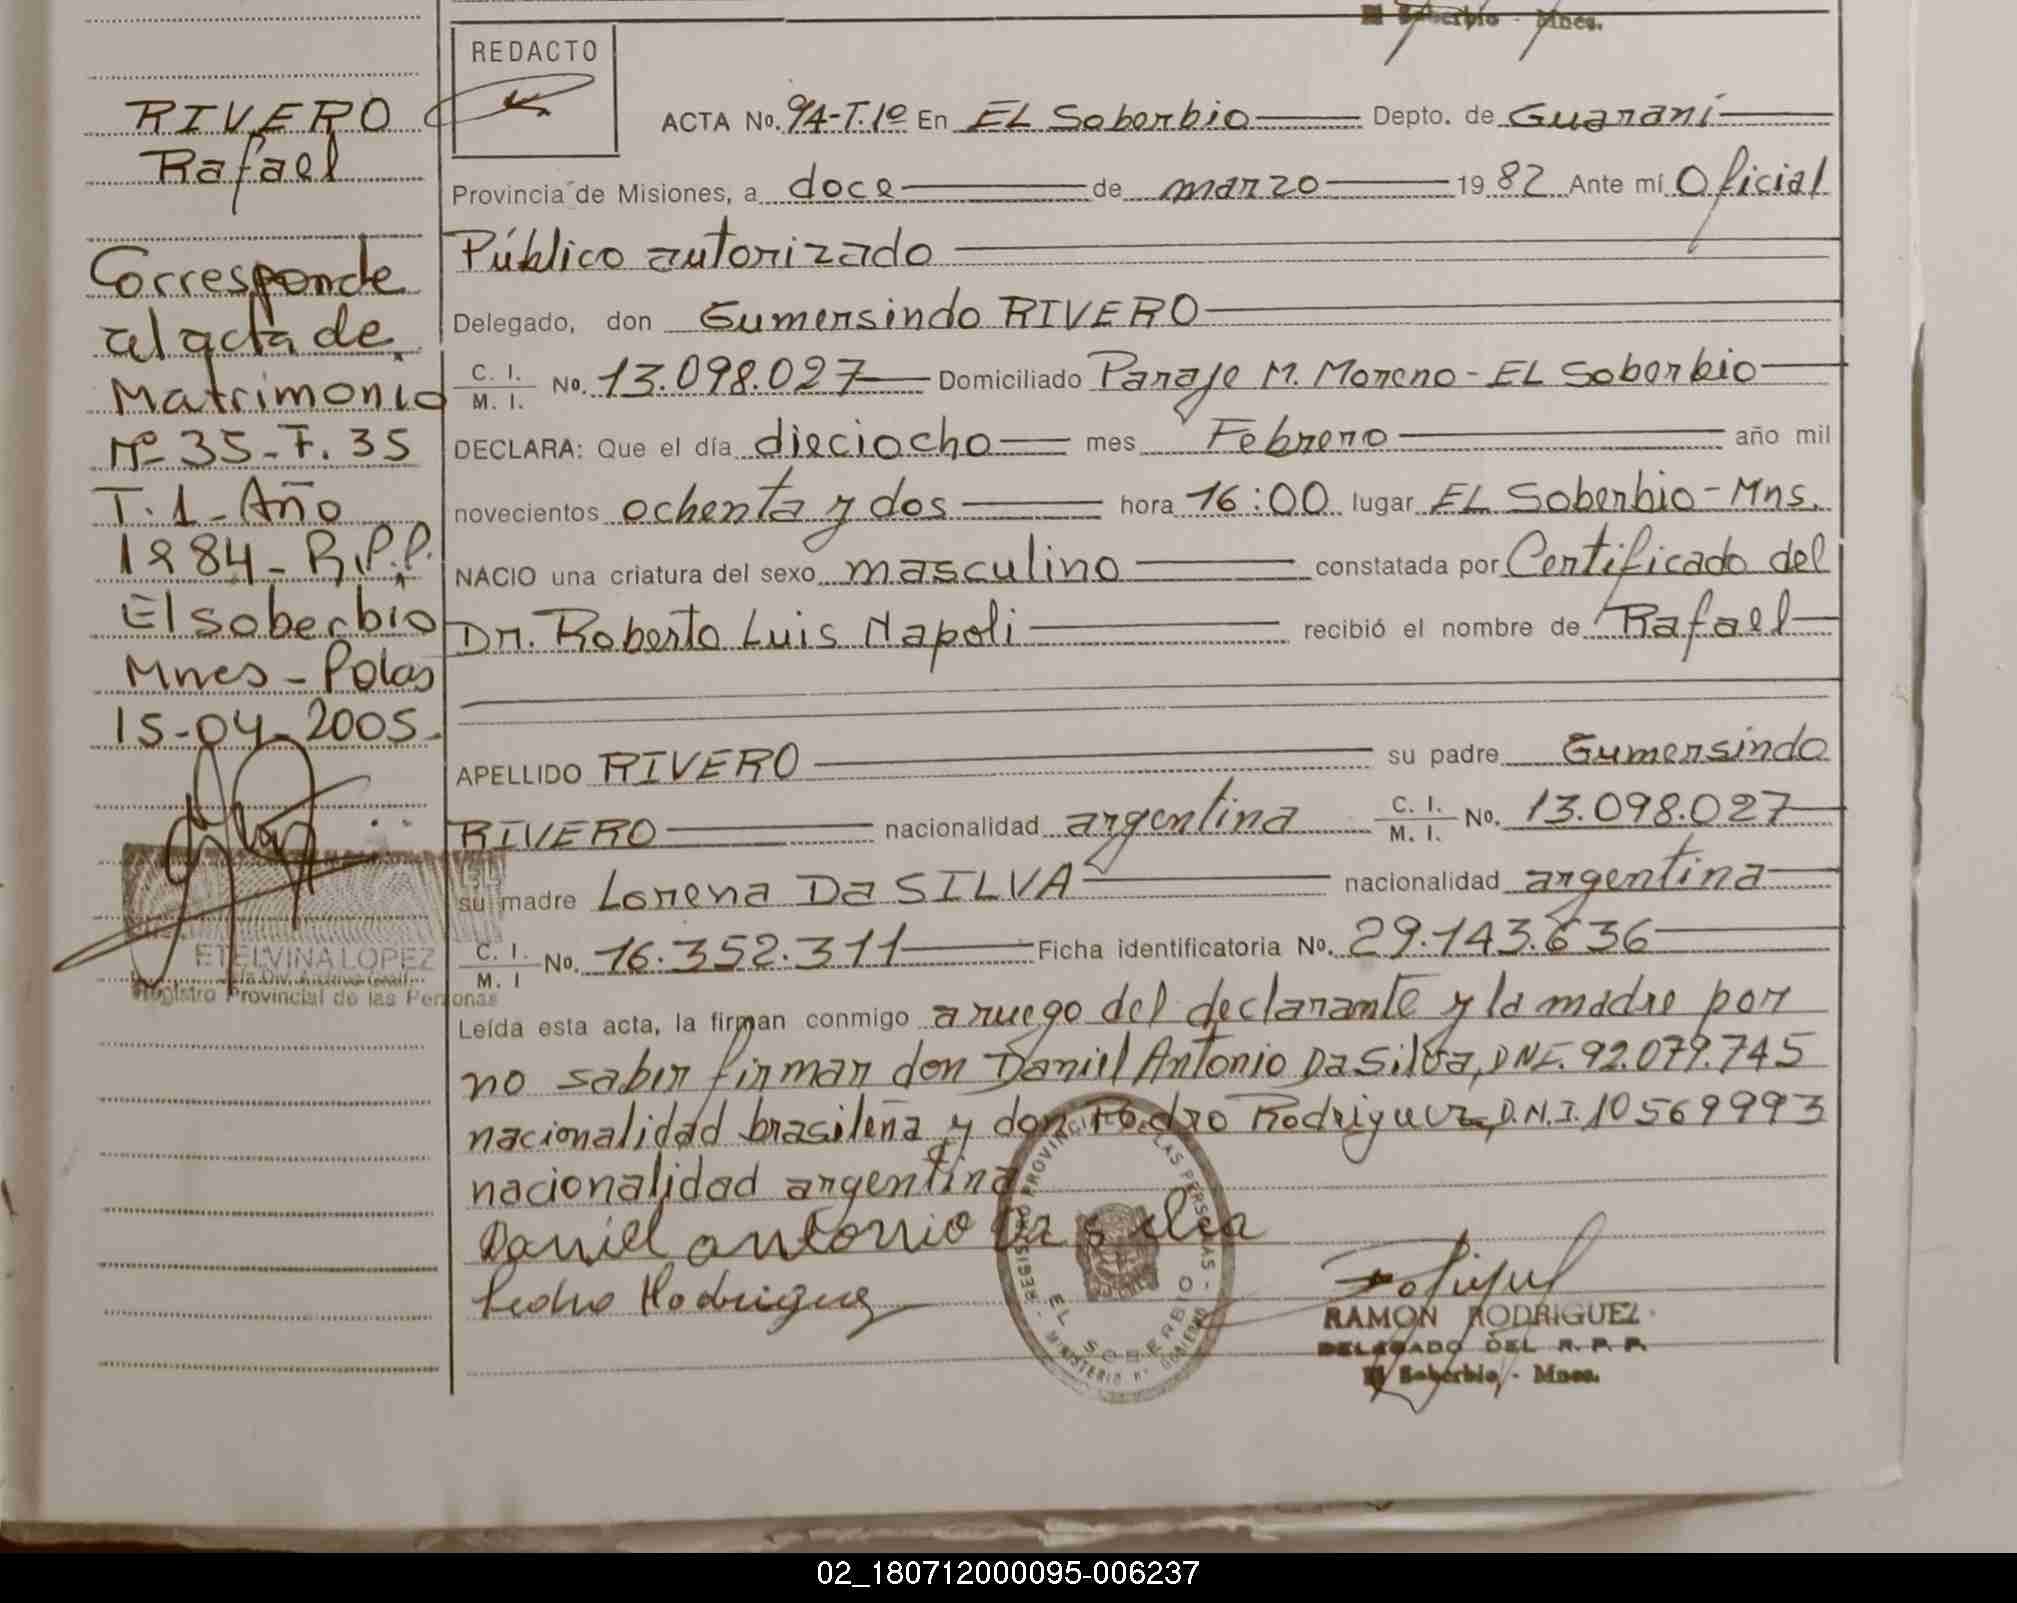 El Soberbio - Mnes.
REDACTO
RIVERO
Rafael
Corresponde
al acta de
Matrimonio
Nº 35-F. 35
T. 1 - Año
1984 - R.P.P.
El soberbio
Mnes - Polas
15-04-2005.
ETELVINA LOPEZ
Registro Provincial de las Personas
ACTA No. 94-T.1º En EL Soberbio Depto. de Guaraní
Provincia de Misiones, a doce de marzo 1982 Ante mí Oficial
Público autorizado
Delegado, don Gumersindo RIVERO
C. I. M. I. No. 13.098.027 Domiciliado Paraje M. Moreno - EL Soberbio
DECLARA: Que el día dieciocho mes Febrero año mil
novecientos ochenta y dos hora 16:00 lugar EL Soberbio - Mns.
NACIO una criatura del sexo masculino constatada por Certificado del
Dr. Roberto Luis Napoli recibió el nombre de Rafael
APELLIDO RIVERO su padre Gumersindo
RIVERO nacionalidad argentina C. I. M. I. No. 13.098.027
su madre Lorena Da SILVA nacionalidad argentina
C. I. M. I No. 16.352.311 Ficha identificatoria No. 29.143.636
Leída esta acta, la firman conmigo a ruego del declarante y la madre por
no saber firmar don Daniel Antonio Da Silva, DNI. 92.079.745
nacionalidad brasileña y don Pedro Rodriguez, D.N.I. 10569993
nacionalidad argentina
Daniel antonio Da silva
Pedro Rodriguez
REGISTRO PROVINCIAL DE LAS PERSONAS
EL SOBERBIO
MINISTERIO DE GOBIERNO
RAMON RODRIGUEZ
DELEGADO DEL R. P. P.
El Soberbio - Mnes.
02_180712000095-006237